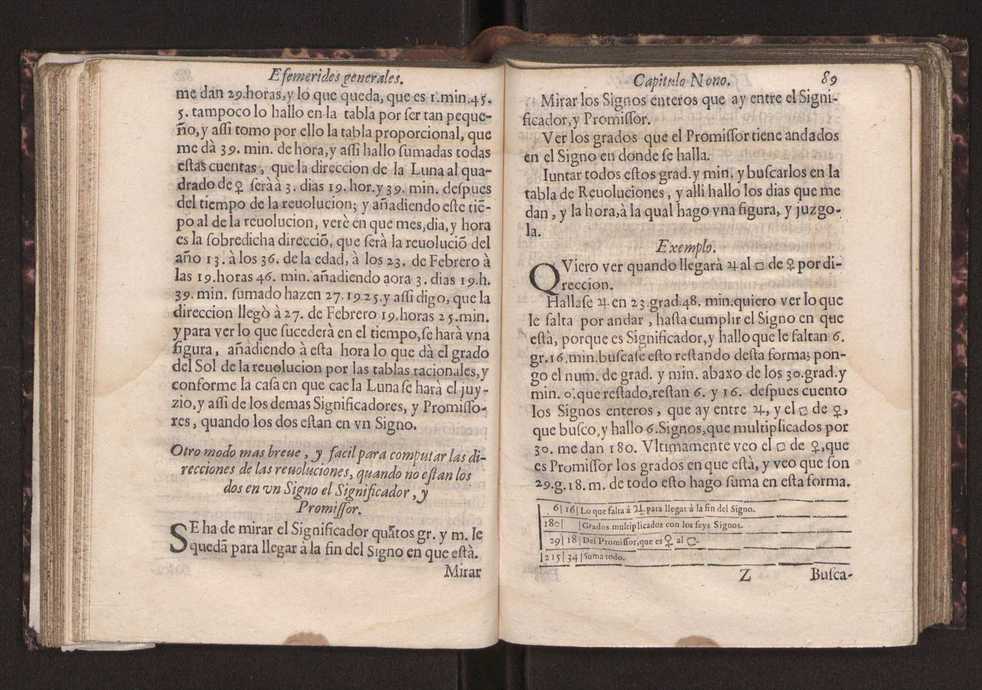 Efemerides generales.
me dan 29.horas,y lo que queda, que es 1.min.45.
5. tampoco lo hallo en la tabla por ſer tan peque-
ño,y aſſi tomo por ello la tabla proporcional, que
me dà 39. min. de hora,y aſſi hallo ſumadas todas
eſtas cuentas, que la direccion de la Luna al qua-
drado de ♀ ſerà à 3. dias 19. hor.y 39. min. deſpues
del tiempo de la reuolucion; y añadiendo eſte tiẽ-
po al de la reuolucion, verè en que mes,dia,y hora
es la ſobredicha direcciõ, que ſerà la reuoluciõ del
año 13. à los 36. de la edad, à los 23. de Febrero à
las 19.horas 46. min. añadiendo aora 3. dias 19.h.
39. min. ſumado hazen 27.19 25.y aſſi digo, que la
direccion llegò à 27. de Febrero 19.horas 25.min.
y para ver lo que ſucederà en el tiempo,ſe harà vna
figura, añadiendo à eſta hora lo que dà el grado
del Sol de la reuolucion por las tablas racionales,y
conforme la caſa en que cae la Luna ſe harà el juy-
zio,y aſſi de los demas Significadores, y Promiſſo-
res, quando los dos eſtan en vn Signo.
Otro modo mas breue, y facil para computar las di-
recciones de las reuoluciones, quando no eſtan los
dos en vn Signo el Significador, y
Promiſſor.
SE ha de mirar el Significador quãtos gr. y m. le
quedã para llegar à la fin del Signo en que eſtà.
Mirar
Capitulo Nono. 89
Mirar los Signos enteros que ay entre el Signi-
ficador,y Promiſſor.
Ver los grados que el Promiſſor tiene andados
en el Signo en donde ſe halla.
Iuntar todos eſtos grad. y min. y buſcarlos en la
tabla de Reuoluciones, y alli hallo los dias que me
dan, y la hora,à la qual hago vna figura, y juzgo-
la.
Exemplo.
QViero ver quando llegarà ♃ al □ de ♀ por di-
reccion.
Hallaſe ♃ en 23.grad.48. min.quiero ver lo que
le falta por andar, haſta cumplir el Signo en que
eſtà, porque es Significador,y hallo que le faltan 6.
gr.16.min.buſcaſe eſto reſtando deſta forma; pon-
go el num. de grad. y min. abaxo de los 30.grad.y
min. 0.que reſtado,reſtan 6. y 16. deſpues cuento
los Signos enteros, que ay entre ♃, y el □ de ♀,
que buſco,y hallo 6.Signos,que multiplicados por
30. me dan 180. Vltimamente veo el □ de ♀,que
es Promiſſor los grados en que eſtà, y veo que ſon
29.g.18.m. de todo eſto hago ſuma en eſta forma.
6|16|Lo que falta à ♃ para llegar à la fin del Signo.
180| |Grados multiplicados con los ſeys Signos.
29|18|Del Promiſſor,que es ♀ al □.
215|34|Suma todo.
Z Buſca-